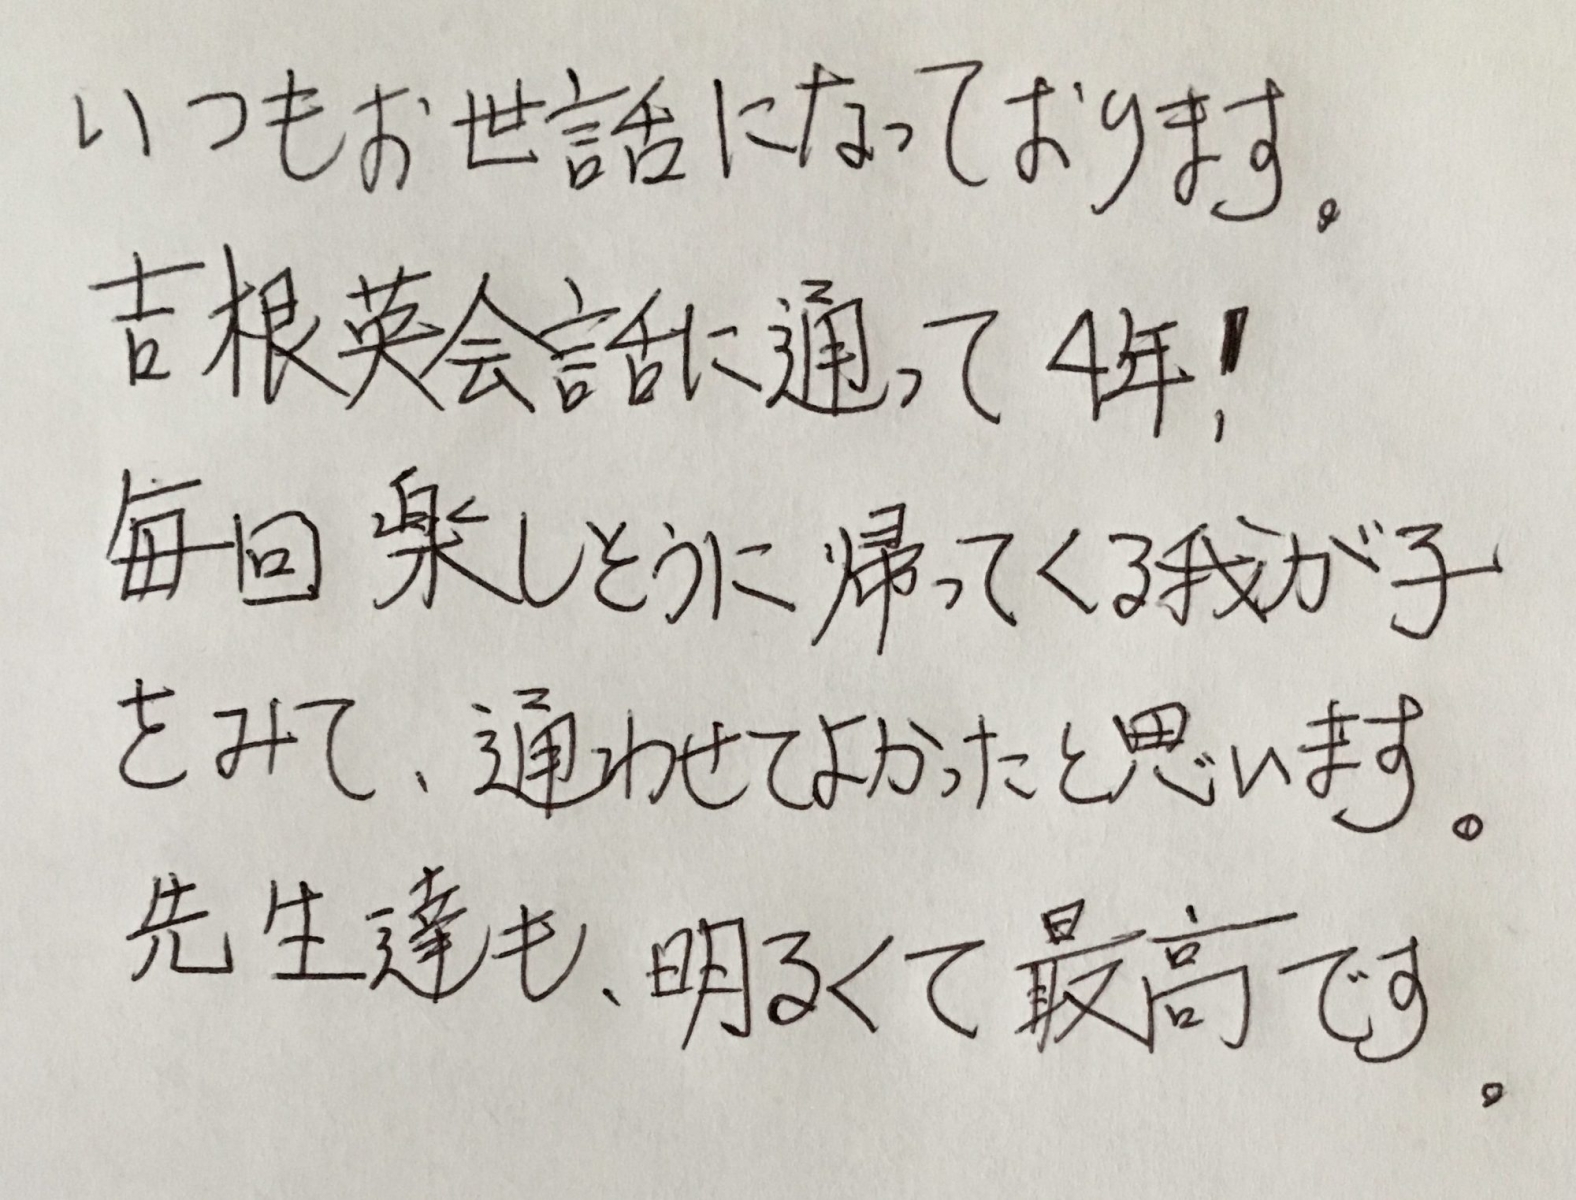 いつもお世話になっております。
吉根英会話に通って4年!
毎回楽しそうに帰ってくる我が子
をみて、通わせてよかったと思います。
先生達も、明るくて最高です。